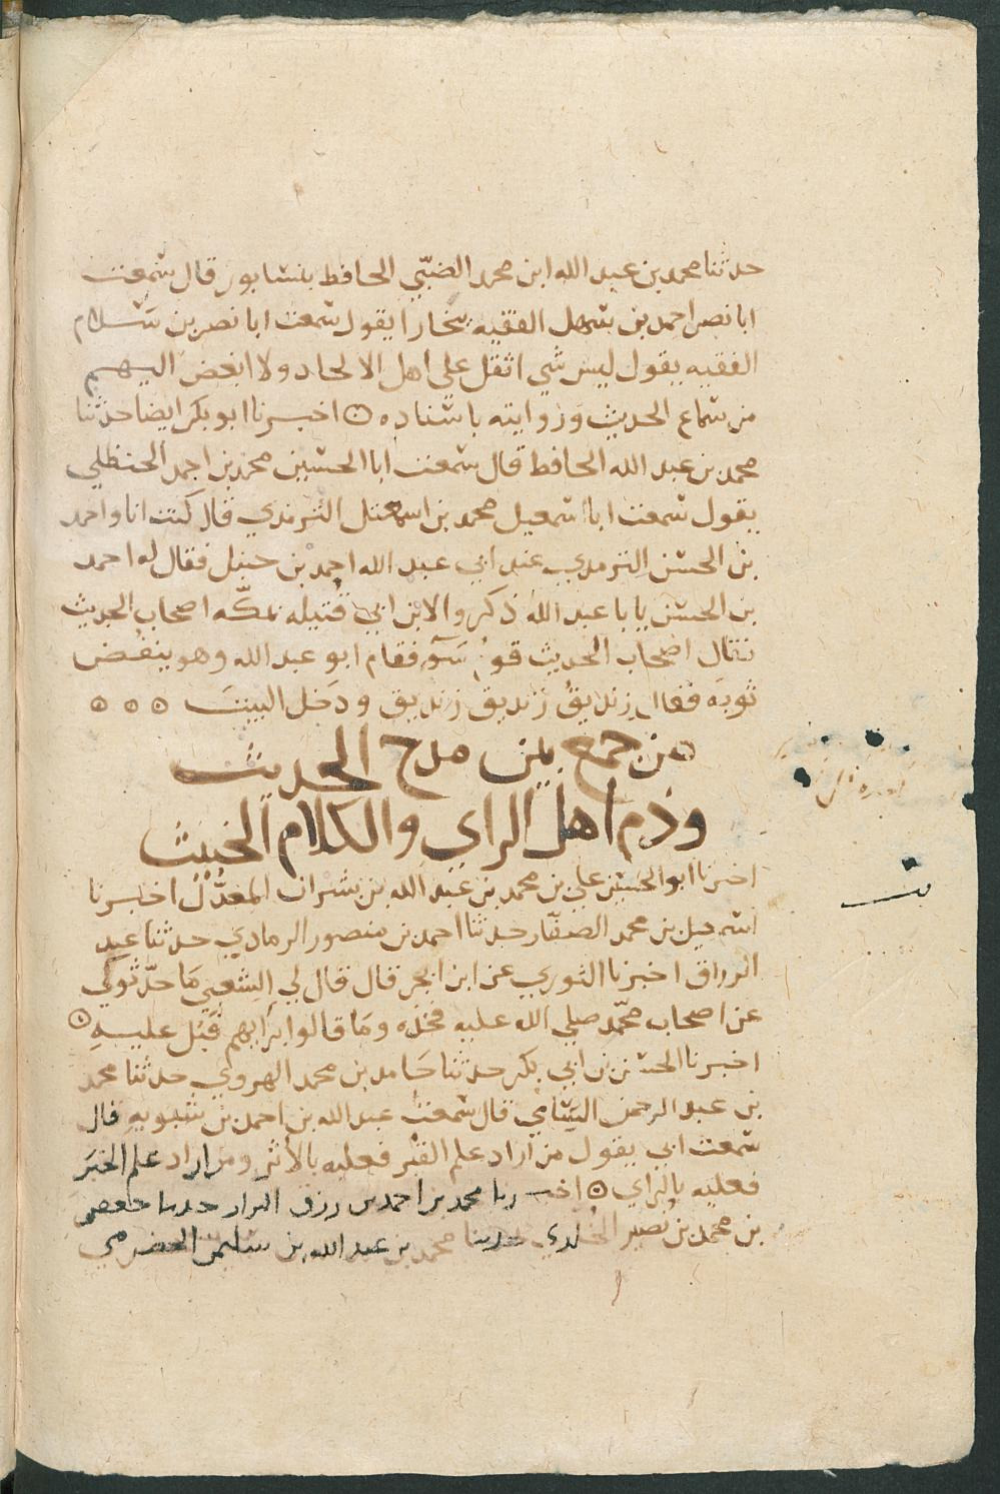 حدثنا محمد بن عبد الله ابن محمد الضبّي الحافظ بنيسابور قال سمعت
ابا نصر احمد بن سهل الفقيه ببخارا يقول سمعت ابا نصر بن سَلام
الفقيه يقول ليس شي اثقل على اهل الالحاد ولا ابغض اليهم
من سماع الحديث وروايته باسناده ۞ اخبرنا ابو بكر ايضا حدثنا
محمد بن عبد الله الحافظ قال سمعت ابا الحسين محمد بن احمد الحنظلي
يقول سمعت ابا اسمعيل محمد بن اسمعيل الترمذي قال كنت انا واحمد
بن الحسن الترمذي عند ابي عبد الله احمد بن حنبل فقال له احمد
بن الحسن يا با عبد الله ذكروا لابن ابي قتيله بمكّه اصحاب الحديث
فقال اصحاب الحديث قوم سَوْءٍ فقام ابو عبد الله وهو ينفض
ثوبه فقال زنديقٌ زنديق زنديق ودخل البيتَ ۞ ۞ ۞
من جمع بين مدح الحديث
وذم اهل الراي والكلام الخبيث
اخبرنا ابو الحسين علي بن محمد بن عبد الله بن بشران المعدّل اخبرنا
اسمعيل بن محمد الصفّار حدثنا احمد بن منصور الرمادي حدثنا عبد
الرزاق اخبرنا الثوري عن ابن ابجر قال قال لي الشعبي مَا حدّثوك
عن اصحاب محمّد صلي الله عليه فخذه ومَا قالوا برَايهم فَبُل عليهِ ۞
اخبرنا الحسن بن ابي بكر حدثنا حَامد بن محمد الهروي حدثنا محمد
بن عبد الرحمن السَّامي قال سمعت عبد الله بن احمد بن شبويه قال
سمعت ابي يقول من اراد علم القَبْر فعليه بالأثر ومن اراد علم الخبَر
فعليه بالراي ۞ اخبرنا محمد بن احمد بن رزق البزاز حدثنا جعفر
بن محمد بن نُصير الخُلدي حدثنا محمد بن عبد الله بن سليمن الحضرمي